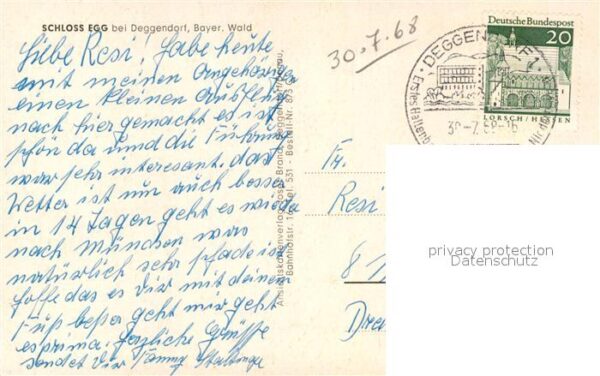 SCHLOSS EGG bei Deggendorf, Bayer. Wald
Liebe Resi! Habe heute
mit meinen Angehörigen
einen kleinen Ausflug
nach hier gemacht es ist
schön da und die Führung
war sehr interesant. das
Wetter ist nun auch besser
in 14 Tagen geht es wieder
nach München was
natürlich sehr schade ist
hoffe das es dir mit deinem
Fuß beßer geht mir geht
es prima. herzliche Grüße
sendet dir
30.7.68
DEGGEN F 1
30-7.68-16
Deutsche Bundespost
20
LORSCH/HESSEN
Ansichtskartenverlag Josef Brand
Bahnhofstr. 16, Tel. 551 - Bestell-Nr. 873
Fr.
Resi
8
privacy protection
Datenschutz